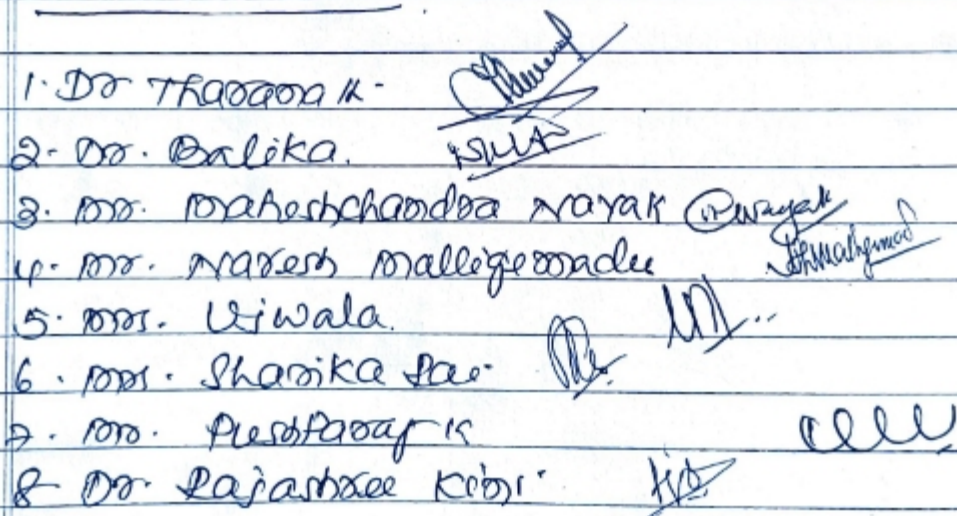 1. Dr Tharana K.
2. Dr. Balika.
3. Mr. Maheshchandra Nayak
4. Mr. Naresh Mallige madu
5. Mrs. Ujwala.
6. Mrs. Sharika Pai
7. Mr. Pushparaj K
8 Dr. Rajashree Kini